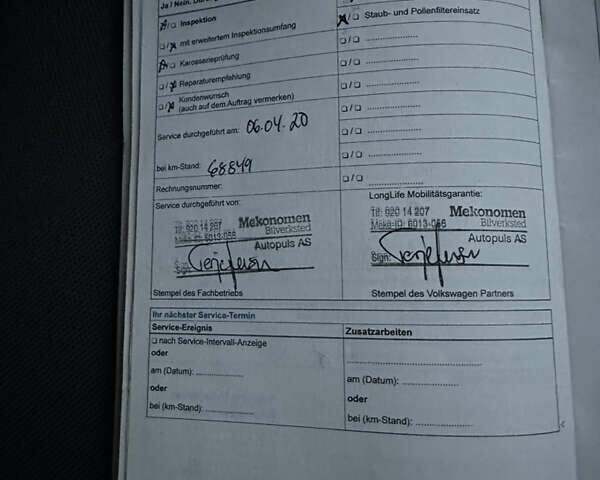 Ja / Nein
Inspektion
mit erweitertem Inspektionsumfang
Karosserieprüfung
Reparaturempfehlung
Kundenwunsch
(auch auf dem Auftrag vermerken)
Service durchgeführt am: 06.04.20
bei km-Stand: 68849
Rechnungsnummer:
Staub- und Pollenfiltereinsatz
Service durchgeführt von:
Tlf: 920 14 207 Mekonomen
Meko-ID: 6013-056 Bilverksted
Autopuls AS
Sign:
Stempel des Fachbetriebs
LongLife Mobilitätsgarantie:
Tlf: 920 14 207 Mekonomen
Meko-ID: 6013-056 Bilverksted
Autopuls AS
Sign:
Stempel des Volkswagen Partners
Ihr nächster Service-Termin
Service-Ereignis
nach Service-Intervall-Anzeige
oder
am (Datum):
oder
bei (km-Stand):
Zusatzarbeiten
am (Datum):
oder
bei (km-Stand):